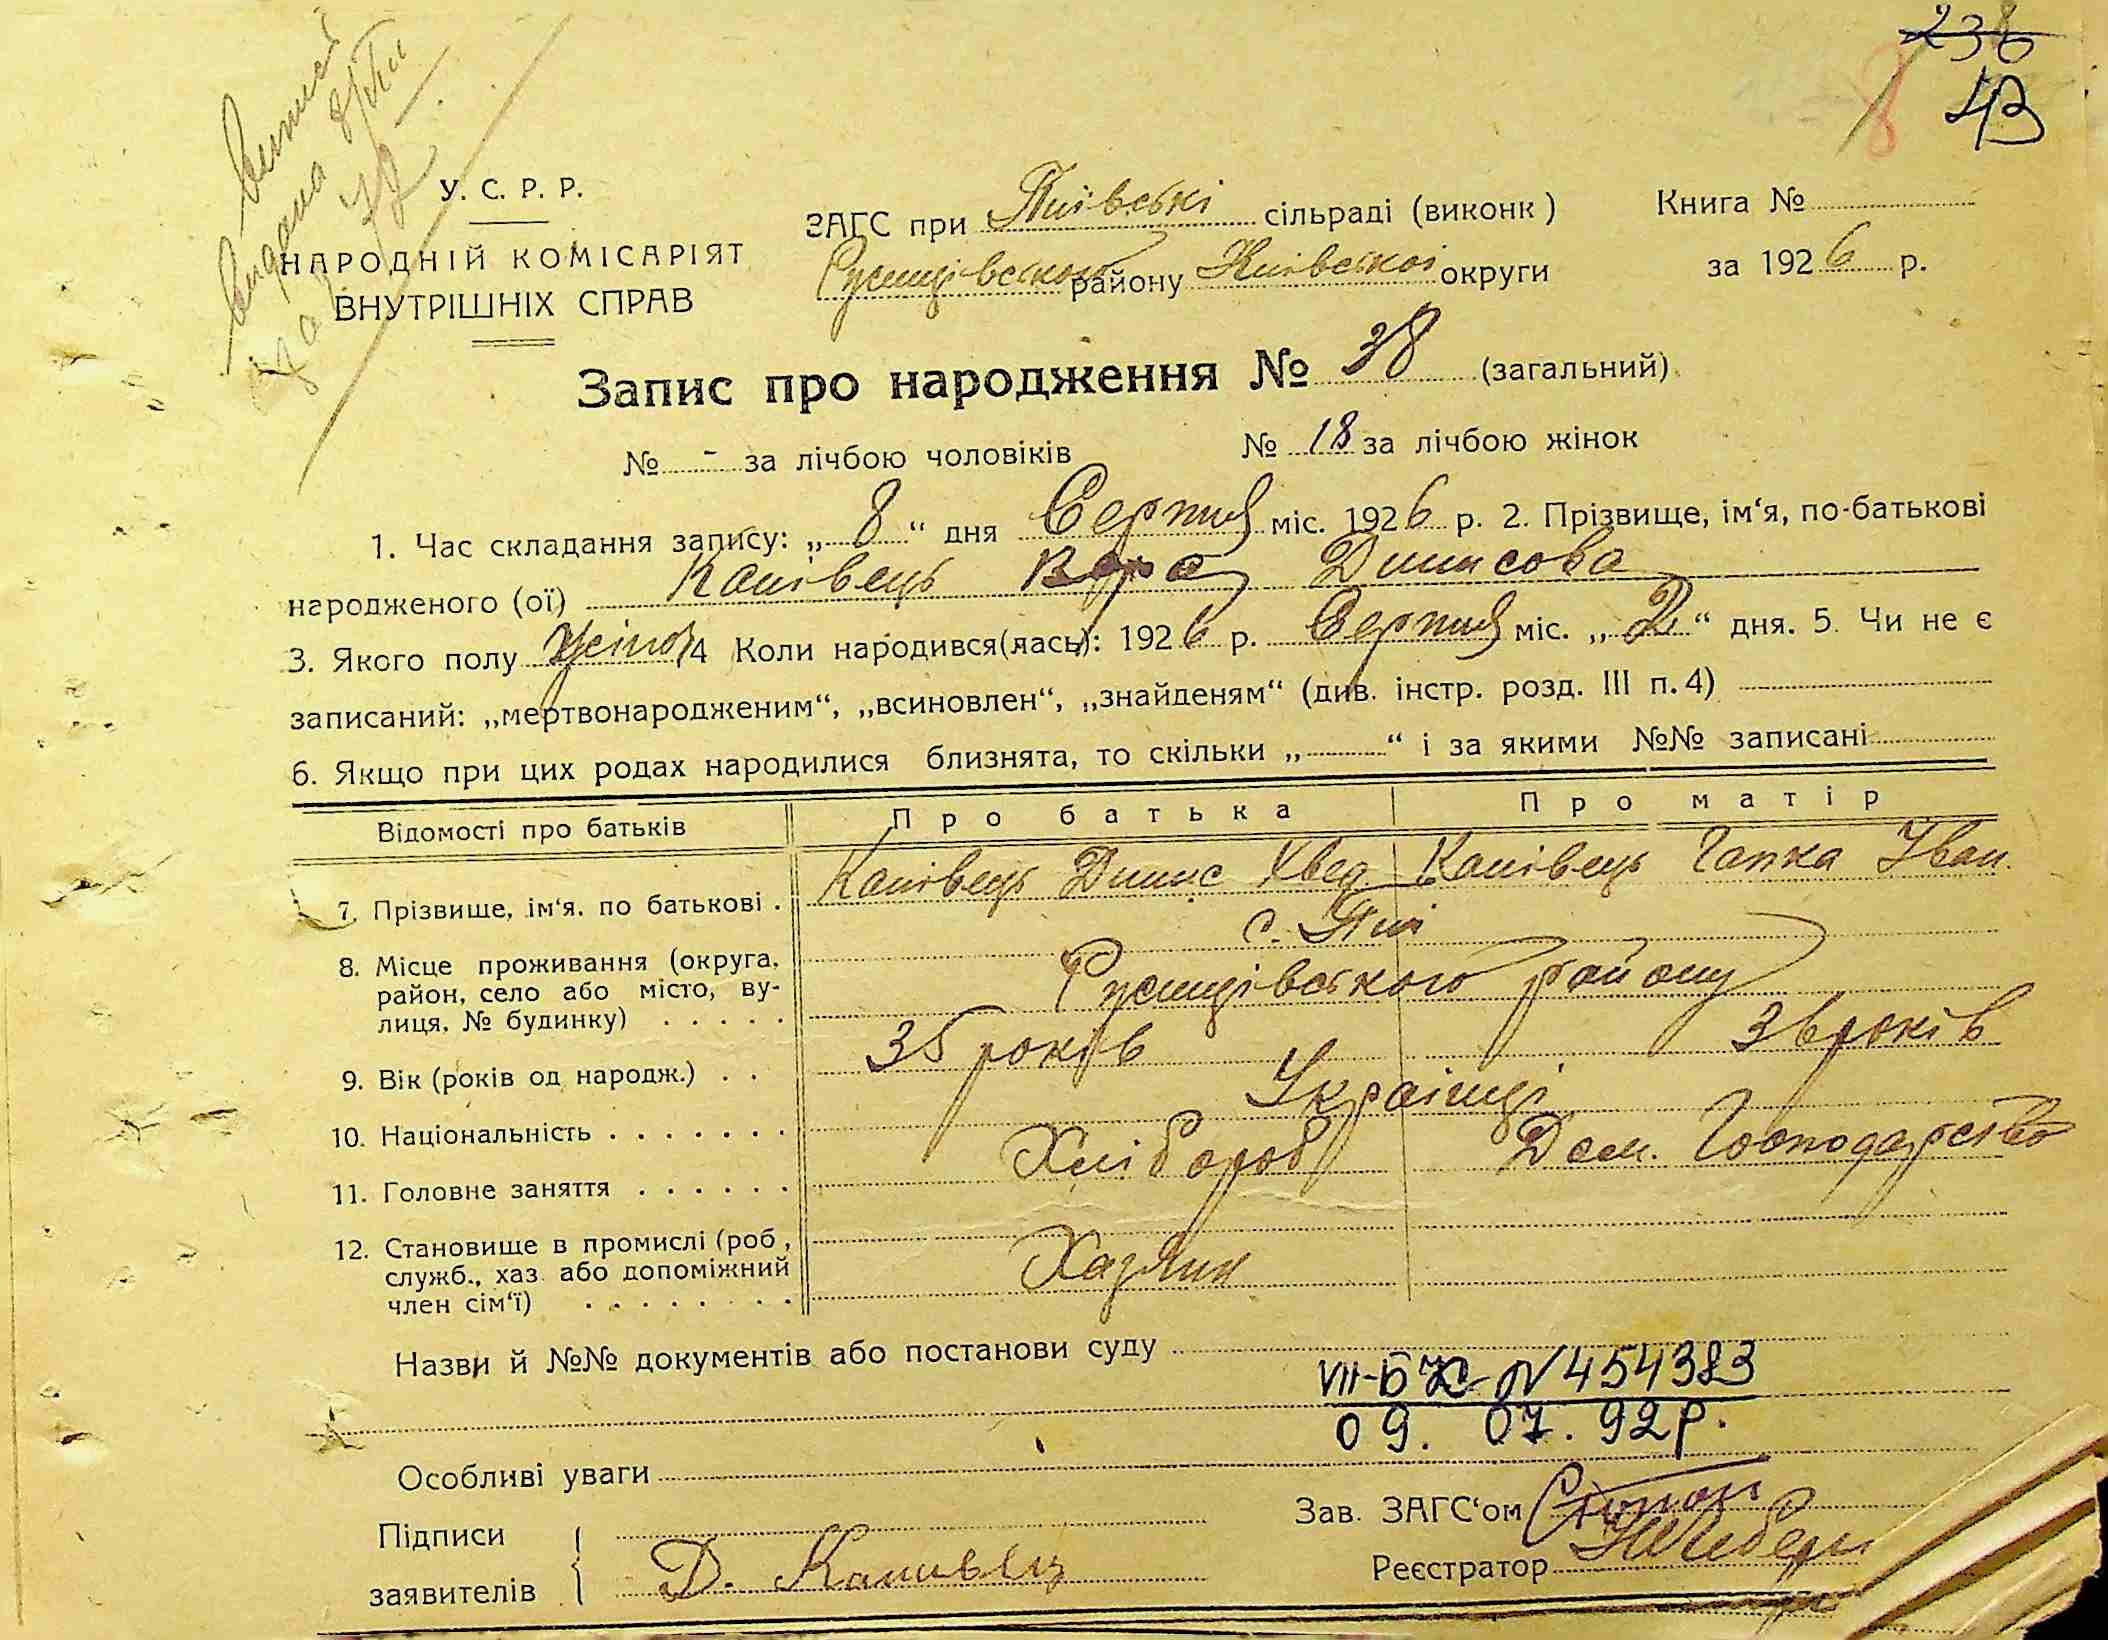 236
8 43
Випись
видана
У. С. Р. Р.
НАРОДНІЙ КОМІСАРІЯТ
ВНУТРІШНІХ СПРАВ
ЗАГС при Пиївські сільраді (виконк) Книга №
Ржищівського району Київської округи за 1926 р.
Запис про народження № 38 (загальний)
№ - за лічбою чоловіків № 18 за лічбою жінок
1. Час складання запису: „ 8 “ дня Серпня міс. 1926 р. 2. Прізвище, ім‘я, по-батькові
народженого (ої) Канівець Вера Динисова
3. Якого полу Жіноч 4 Коли народився(лась): 1926 р. Серпня міс. „ 2 “ дня. 5. Чи не є
записаний: „мертвонародженим“, „всиновлен“, „знайденям“ (див. інстр. розд. III п. 4)
6. Якщо при цих родах народилися близнята, то скільки „ “ і за якими №№ записані
Відомості про батьків Про батька Про матір
7. Прізвище, ім‘я. по батькові . Канівець Динис Хвед Канівець Гапка Іван.
с. Пиї
8. Місце проживання (округа, район, село або місто, ву-
лиця, № будинку) . . . . . Ржищівського району
9. Вік (років од народж.) . . 35 років років
10. Національність . . . . . . . Українці
11. Головне заняття . . . . . . Хлібороб Дом. Господарство
12. Становище в промислі (роб,
служб., хаз. або допоміжний Хазяин
член сім‘ї) . . . . . . . .
Назви й №№ документів або постанови суду
VII-БК N 454383
09. 07. 92р.
Особливі уваги
Зав. ЗАГС‘ом
Підписи
заявителів Д. Канивец Реєстратор